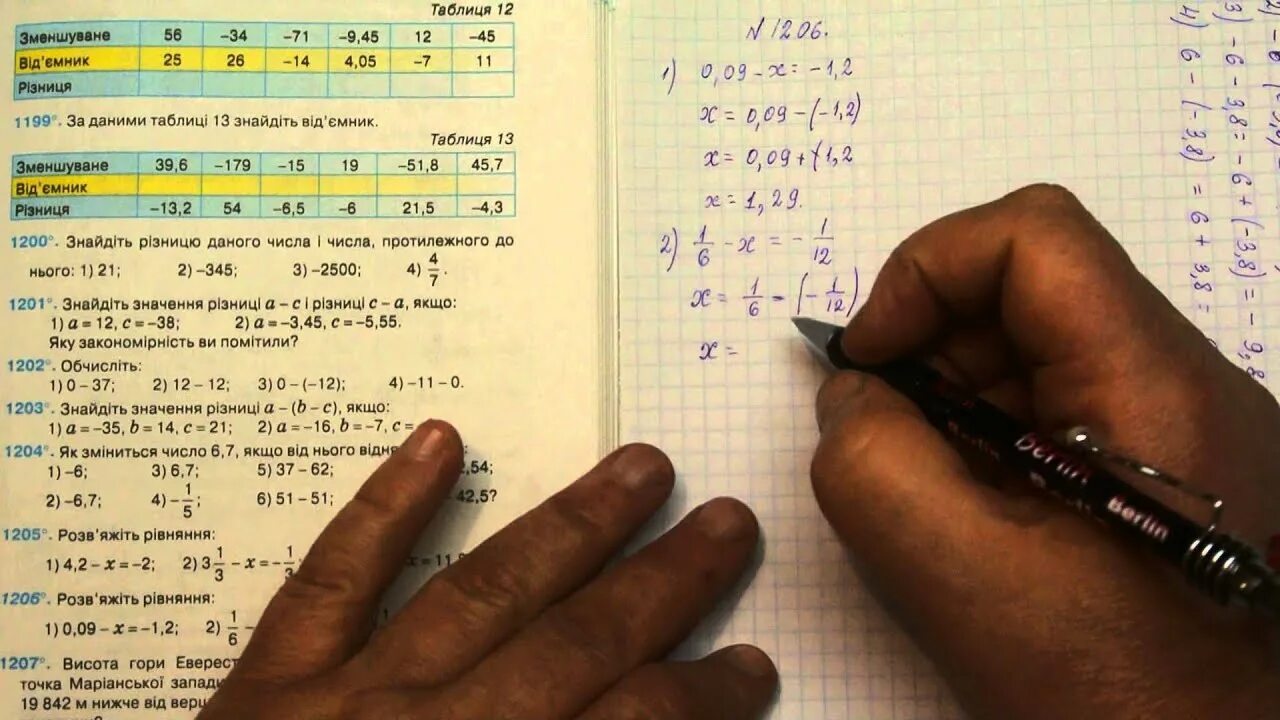 Таблиця 12
Зменшуване 56 –34 –71 –9,45 12 –45
Від'ємник 25 26 –14 4,05 –7 11
Різниця
1199°. За даними таблиці 13 знайдіть від'ємник.
Таблиця 13
Зменшуване 39,6 –179 –15 19 –51,8 45,7
Від'ємник
Різниця –13,2 54 –6,5 –6 21,5 –4,3
1200°. Знайдіть різницю даного числа і числа, протилежного до
нього: 1) 21; 2) –345; 3) –2500; 4) 4/7.
1201°. Знайдіть значення різниці a – c і різниці c – a, якщо:
1) a = 12, c = –38; 2) a = –3,45, c = –5,55.
Яку закономірність ви помітили?
1202°. Обчисліть:
1) 0 – 37; 2) 12 – 12; 3) 0 – (–12); 4) –11 – 0.
1203°. Знайдіть значення різниці a – (b – c), якщо:
1) a = –35, b = 14, c = 21; 2) a = –16, b = –7, c =
1204°. Як зміниться число 6,7, якщо від нього
1) –6; 3) 6,7; 5) 37 – 62; 2,54;
2) –6,7; 4) –1/5; 6) 51 – 51; 42,5?
1205°. Розв'яжіть рівняння:
1) 4,2 – x = –2; 2) 3 1/3 – x = –1/3;
1206°. Розв'яжіть рівняння:
1) 0,09 – x = –1,2; 2) 1/6 –
1207°. Висота гори Еверест
точка Маріанської
19 842 м нижче від
№ 1206.
1) 0,09 – x = –1,2
x = 0,09 – (–1,2)
x = 0,09 + 1,2
x = 1,29.
2) 1/6 – x = – 1/12
x = 1/6 – (– 1/12)
x =
3) –6 – 3,8 = –6 + (–3,8) = –9,8
4) 6 – (–3,8) = 6 + 3,8 =
Berlin
Berlin
Berlin